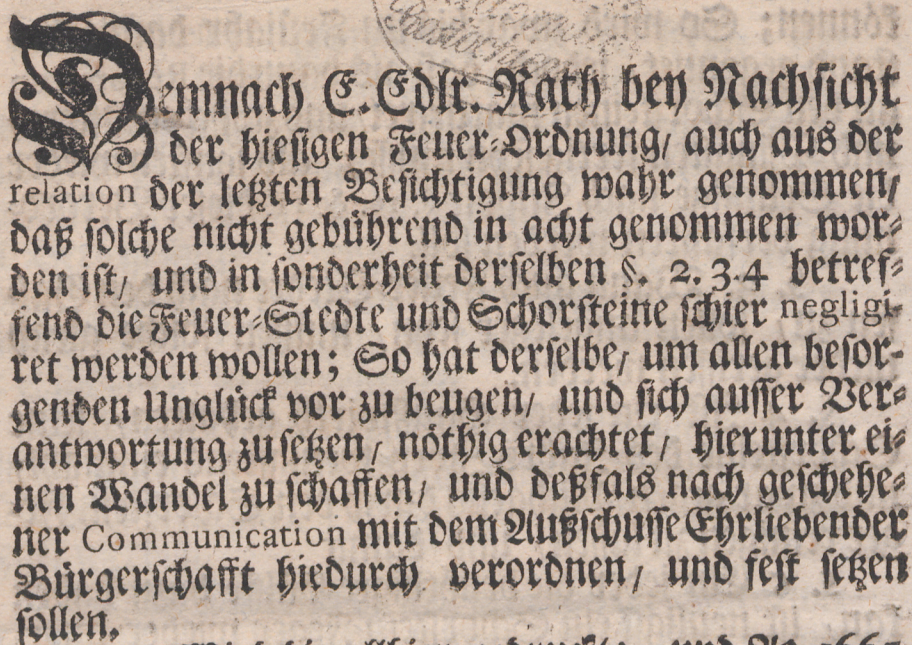 Demnach E. Edlr. Rath bey Nachsicht
der hiesigen Feuer-Ordnung/ auch aus der
relation der letzten Besichtigung wahr genommen/
daß solche nicht gebührend in acht genommen wor-
den ist/ und in sonderheit derselben §. 2. 3. 4 betref-
fend die Feuer-Stedte und Schorsteine schier negligi-
ret werden wollen; So hat derselbe/ um allen besor-
genden Unglück vor zu beugen/ und sich ausser Ver-
antwortung zu setzen/ nöthig erachtet/ hierunter ei-
nen Wandel zu schaffen/ und deßfals nach geschehe-
ner Communication mit dem Außschusse Ehrliebender
Bürgerschafft hiedurch verordnen/ und fest setzen
sollen.